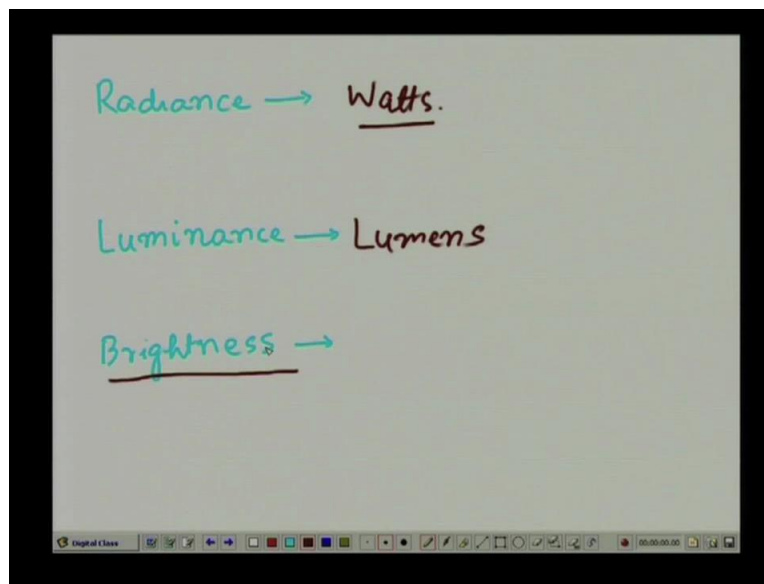 Radiance → Watts.
Luminance → Lumens
Brightness →
Digital Class 00:00:00.00